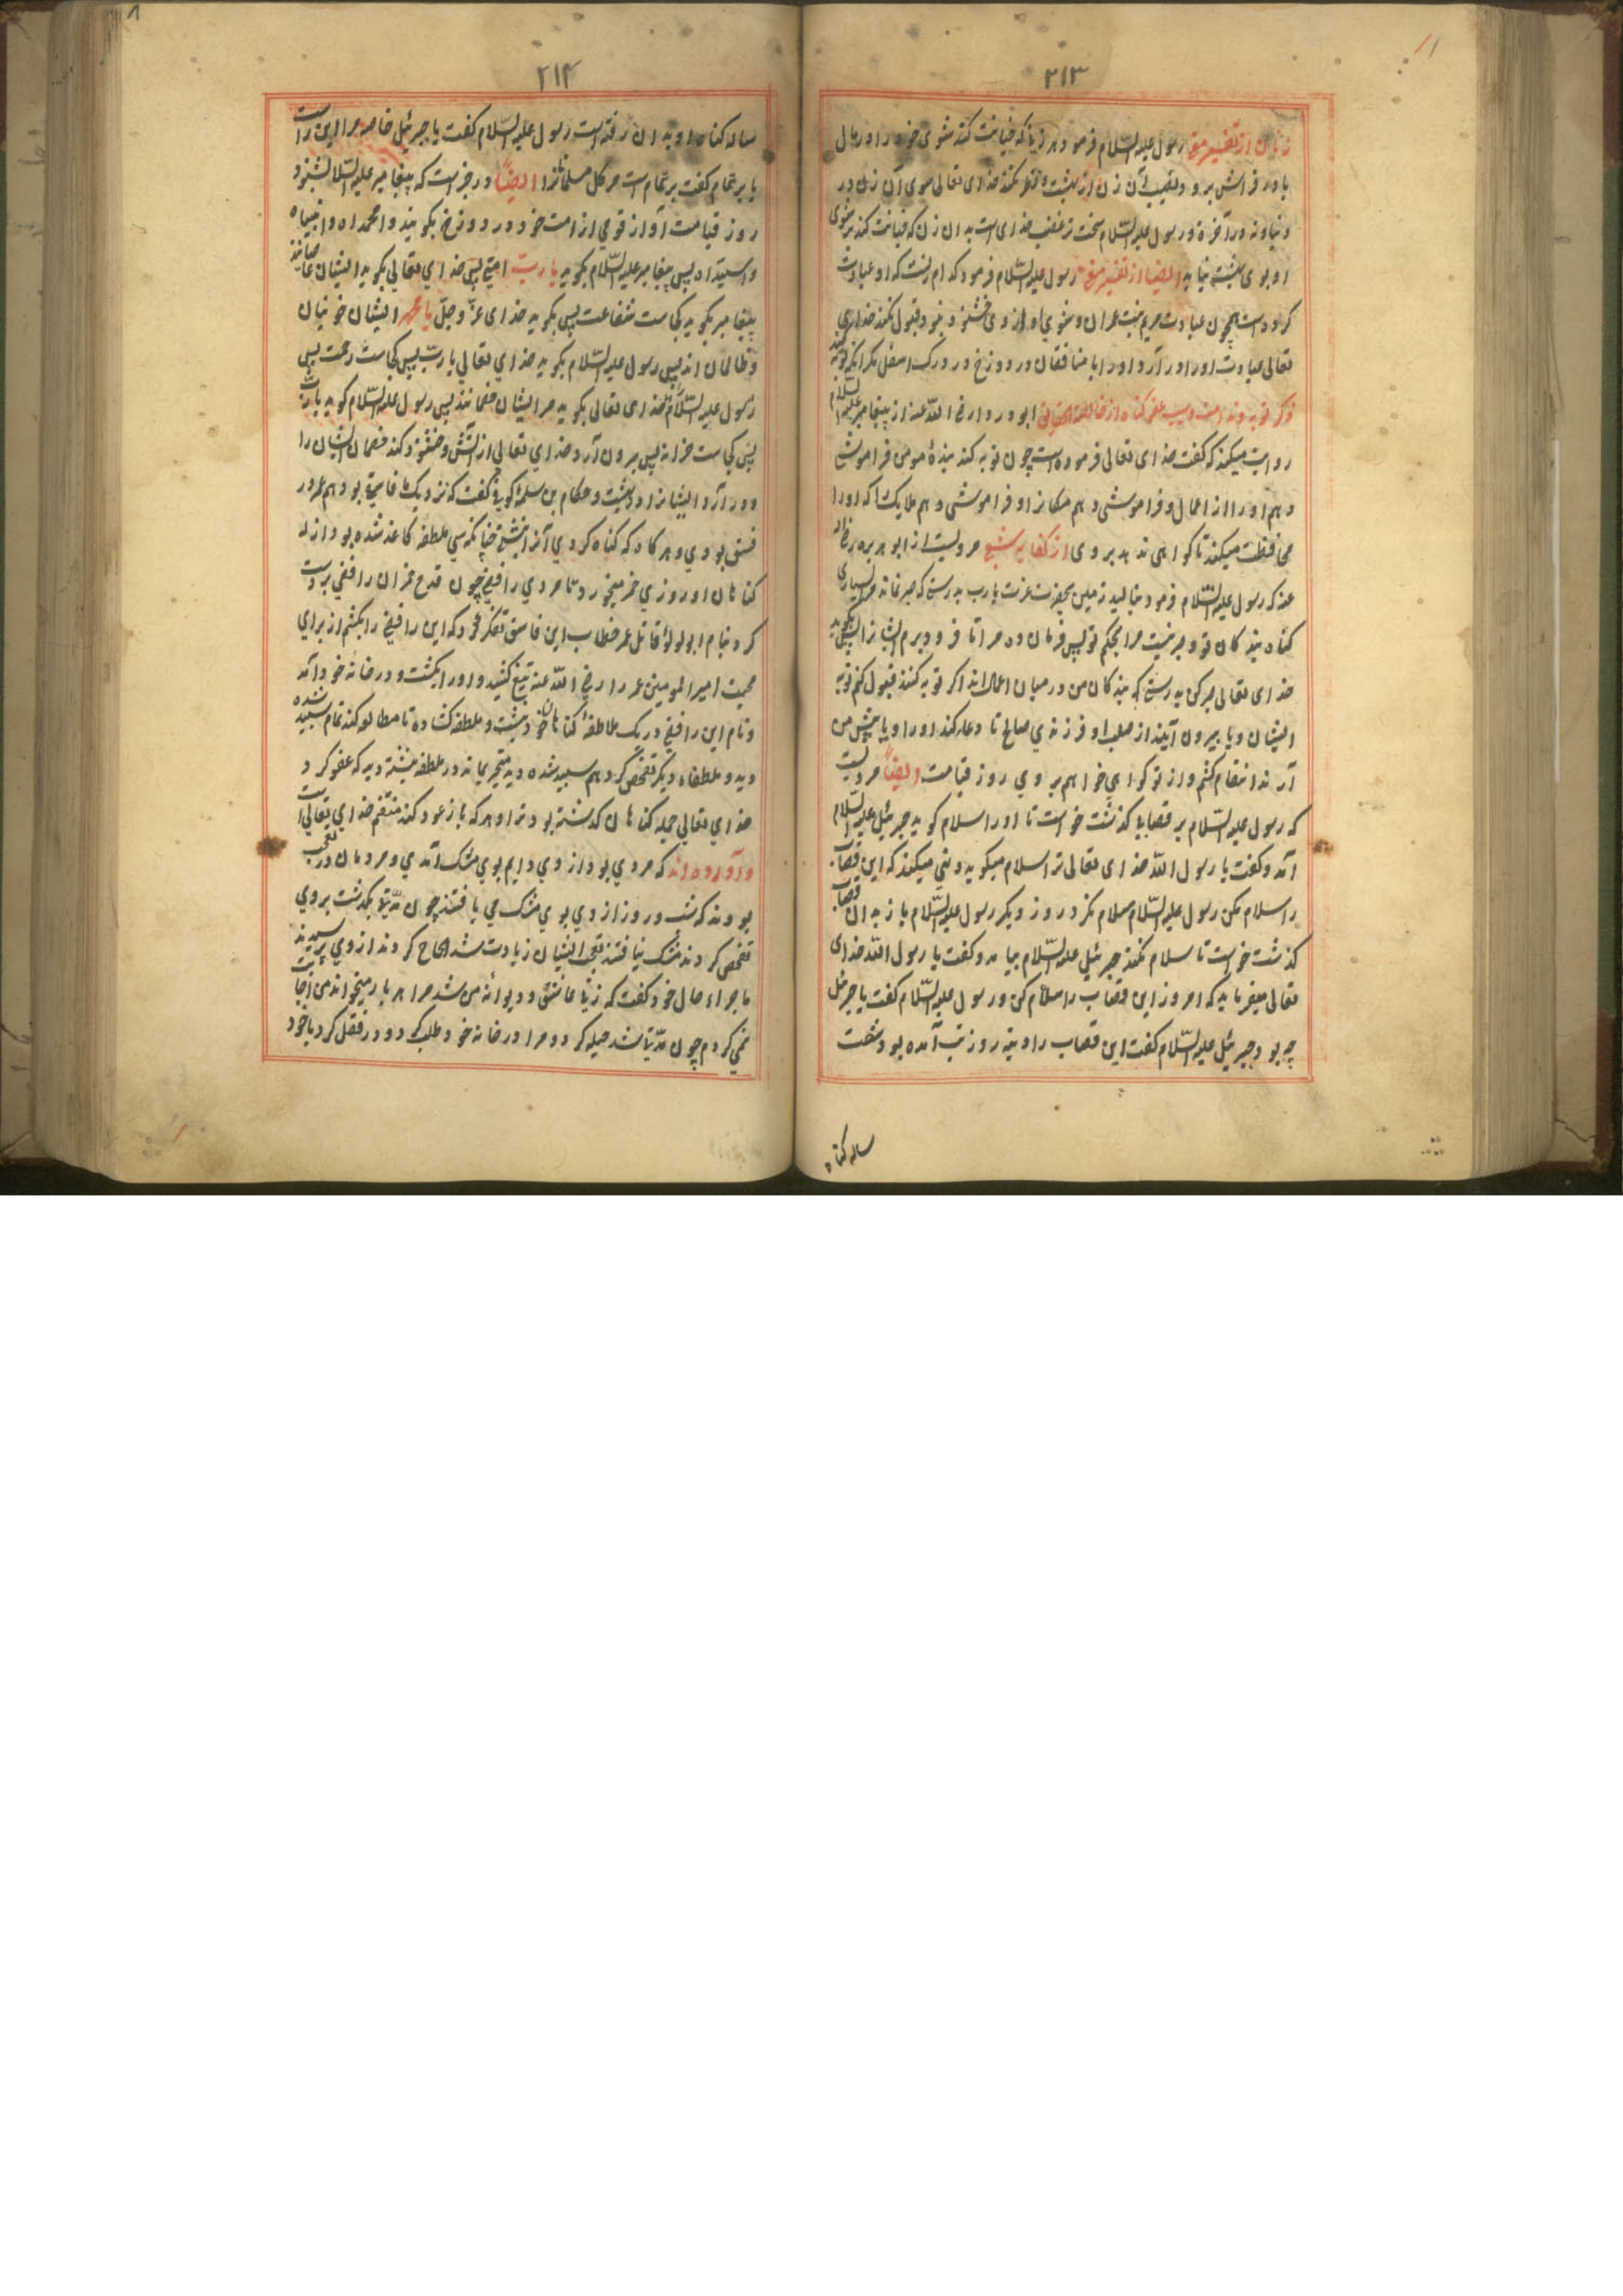 ٢١٣
زنان از تفسیر مغ رسول علیه السّلام فرمود هر زنی که خیانت کند شوی خود را در مال
یا در فراش بر و بوی آن زن از بهشت و نظر نکند خدای تعالی سوی آن زن در
دنیا و نه در آخرة و رسول علیه السّلام سخت تر غضب خدای است بدان زن که خیانت کند بر شوی
او بوی بهشت نیابد ایضا از تفسیر مغ رسول علیه السّلام فرمود که ام زنست که او عبادت
کرده است همچون عبادت مریم بنت عمران و شوی او از وی خشنود نبود قبول نکند خدای
تعالی عبادت او را و در آرد او را با منافقان در دوزخ در درک اسفل مگر آنکه توبه کند
ذکر توبه و ندامت و سبب عفو گناه از خالصة الحقایق ابو دردا رضی اللّه عنه از پیغامبر علیه السّلام
روایت میکند که گفت خدای تعالی فرموده است چون توبه کند بندهٔ مومن فراموشی
دهم او را از اعمال و فراموشی دهم مکان از او فراموشی دهم ملایک را که او را
محافظت میکند تا گواهی ندهد بر وی از کفایه شعبی مرویست از ابو هریره رضی اللّه
عنه که رسول علیه السّلام فرمود بنالید زمین بحضرت عزت یا رب بدرستی که صبر نماند مرا بسیاری
گناه بندگان تو و صبر نیست مرا بحکم تو پس فرمان ده مرا تا فرو برم ایشانرا پس بگوید
خدای تعالی صبر کن بدرستی که بندگان من در میان اعمال اند اگر توبه کنند قبول کنم توبه
ایشان و یا بیرون آیند از صلب او فرزندی صالح تا دعا کند او را و یا پیش من
آرند انتقام کشم و از تو گواهی خواهم بر وی روز قیامت ایضاً مرویست
که رسول علیه السّلام بر قصابی گذشت خواست تا او را سلام گوید جبرئیل علیه السّلام
آمد و گفت یا رسول اللّه خدای تعالی ترا سلام میگوید و نهی میکند که این قصاب
را سلام مکن رسول علیه السّلام سلام نکرد روز دیگر رسول علیه السّلام باز بدان قصاب
گذشت خواست تا سلام نکند جبرئیل علیه السّلام بیامد و گفت یا رسول اللّه خدای
تعالی میفرماید که امروز این قصاب را سلام کن و رسول علیه السّلام گفت یا جبرئیل
چه بود جبرئیل علیه السّلام گفت این قصاب را دینه روز تب آمده بود شصت
ساله گناه
٢١٤
ساله گناه او بدان رفته است رسول علیه السّلام گفت یا جبرئیل خاصه مرا این راست
یا بر تمام گفت بر تمام است مر کل مسلمانرا ایضاً و در خبر است که پیغامبر علیه السّلام بشنود
روز قیامت آواز قومی از امت خود در دوزخ بگویند وا محمداه وا نبیاه
وا سیداه پس پیغامبر علیه السّلام بگوید یا رب امتی پس خدای تعالی بگوید ایشان عاصیانند
پیغامبر بگوید کجاست شفاعت پس بگوید خدای عزّ و جلّ یا محمد ایشان خونیان
و ظالمان اند پس رسول علیه السّلام بگوید خدای تعالی یا ربّ پس کجاست رحمت پس
رسول علیه السّلام خدای تعالی بگوید مر ایشان خصمانند پس رسول علیه السّلام گوید یا ربّ
پس کجاست خزانه پس بیرون آرد خدای تعالی از آتش و خشنود کند خصمان ایشان را
و در آرد ایشانرا در بهشت و حکام بن سلمه کوفی گفت که نزدیک ما فاسقی بود هم عمر در
فسق بودی و هر گاه که گناه کردی آنرا نبشتی چنانکه سی ملطفه کاغذ شده بود از له
گناهان او روزی خمر میخورد تا مردی رافضی چون قدح خمران رافضی بر دست
کرد بنام ابو لولؤ قاتل عمر خطاب این فاسق تفکر خورد که این رافضی را بکشم از برای
حمیت امیر المومنین عمر را رضی اللّه عنه تیغ کشید و او را بکشت و در خانه خود آمد
و نام این رافضی در یک ملاطفه گناهان خود نبشت و ملطفه گشاده تا مطالعه کند تمام سپید شده
دید و ملطفه دیگر تفحص کرد هم سپید شده دید متحیر بماند در ملطفه نبشته دید که عفو کرد
خدای تعالی جمله گناهان گذشته بود ترا و هر که باز عود کند منتقم خدای تعالی است
و آورده اند که مردی بود از وی دایم بوی مشک آمدی و مردمان در تعجب
بودند که شب و روز از وی بوی مشک می یافتند چون مدّتها بگذشت بروی
تفحص کردند مشک نیافتند تعجب ایشان زیادت شد الحاح کردند از وی پرسیدند
ماجراء حال خود گفت که زنی عاشق و دیوانه من شد مرا هر بار میخواند من اجابت
نمی کردم چون مدّتها شد حیله کرد و مرا در خانه خود طلب کرد و در قفل کرد با خود